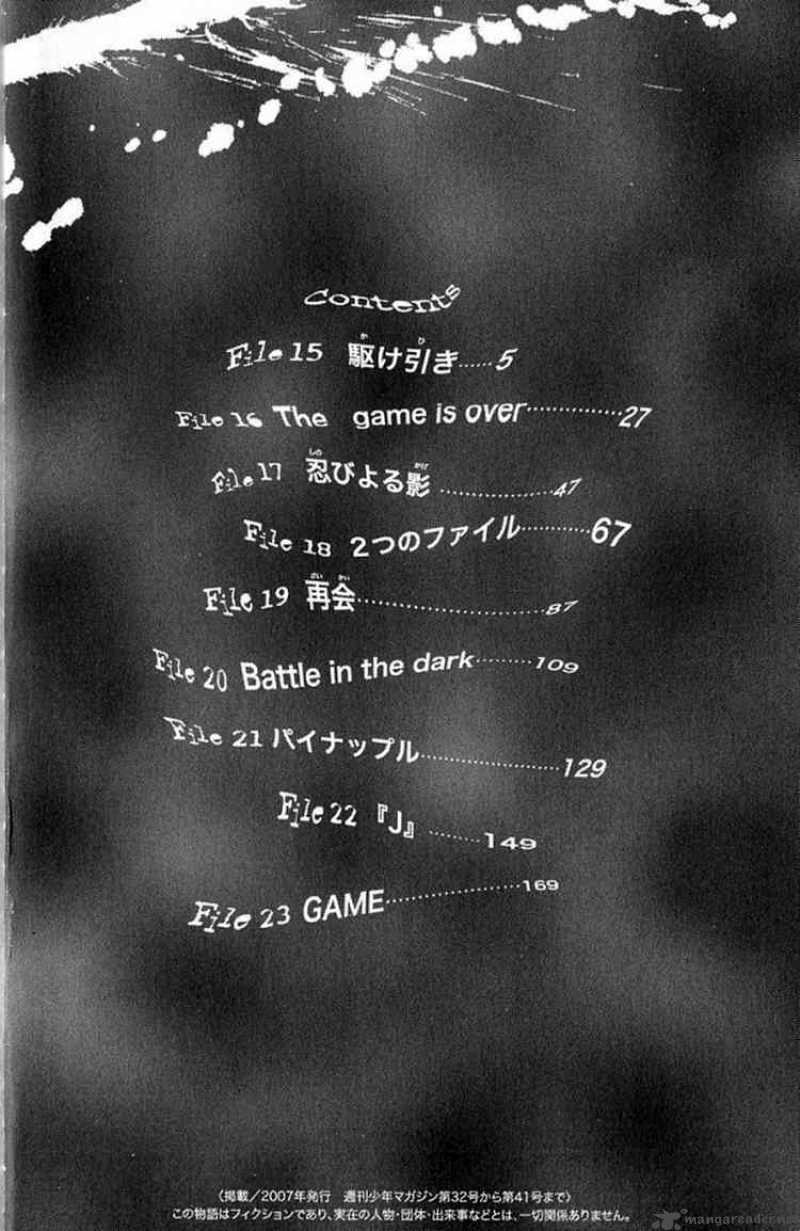 Contents
File 15 駆け引き……5
File 16 The game is over…………27
File 17 忍びよる影…………47
File 18 2つのファイル…………67
File 19 再会…………87
File 20 Battle in the dark………109
File 21 パイナップル…………129
File 22 『J』………149
File 23 GAME…………169
〈掲載／2007年発行 週刊少年マガジン第32号から第41号まで〉
この物語はフィクションであり、実在の人物・団体・出来事などとは、一切関係ありません。